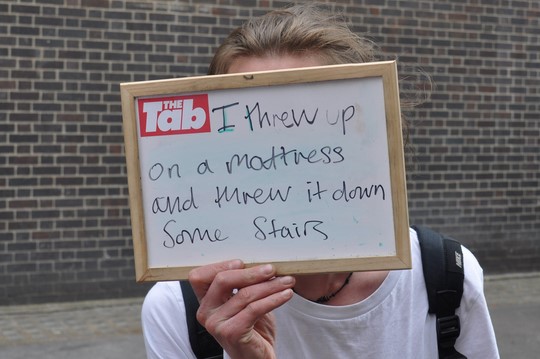 THE
Tab
I threw up
on a mattress
and threw it down
Some Stairs
NIKE